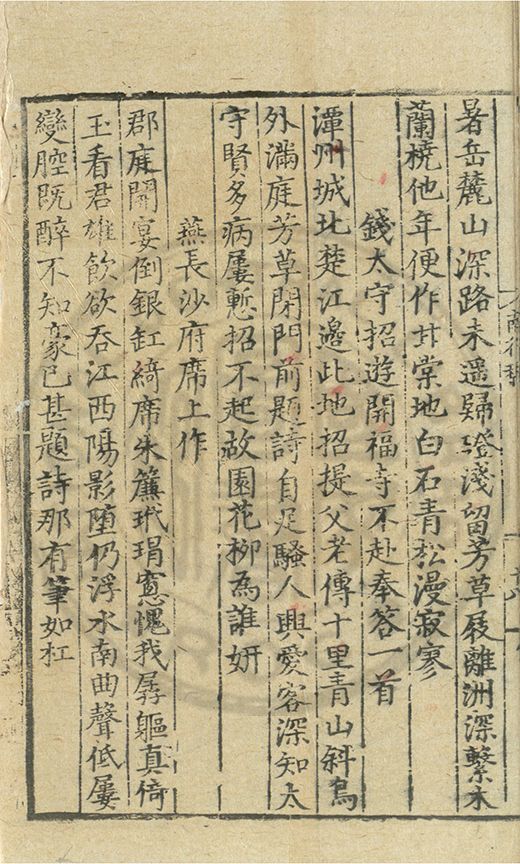 暑岳麓山深路未遥歸磴淺留芳草屐離洲深繫木
蘭橈他年便作甘棠地白石青松漫寂寥
錢太守招遊開福寺不赴奉答一首
潭州城北楚江邊此地招提父老傳十里青山斜鳥
外滿庭芳草閉門前題詩自足騷人興愛客深知太
守賢多病屢慙招不起故園花柳為誰妍
燕長沙府席上作
郡庭開宴倒銀缸綺席朱簾玳瑁窻愧我孱軀真倚
玉看君雄飲欲吞江西陽影墮仍浮水南曲聲低屢
變腔既醉不知豪已甚題詩那有筆如杠